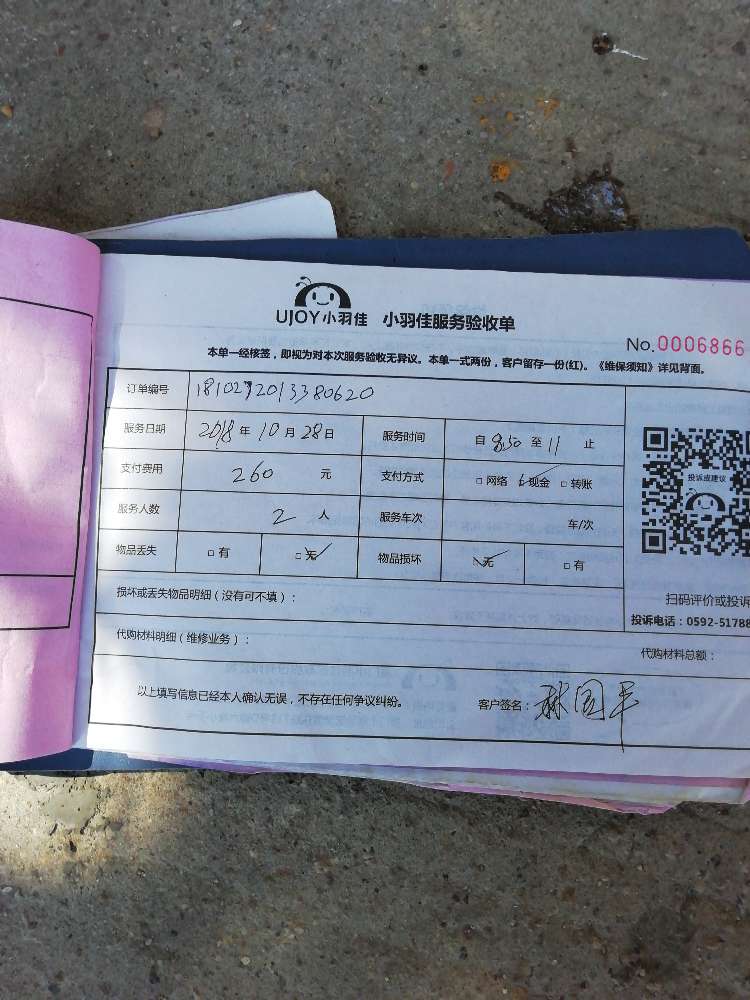 UJOY小羽佳 小羽佳服务验收单
No.0006866
本单一经核签，即视为对本次服务验收无异议。本单一式两份，客户留存一份(红)。《维保须知》详见背面。
订单编号 1810272013380620
服务日期 2018年10月28日 服务时间 自8:50至11止
支付费用 260元 支付方式 □网络 □现金 □转账
服务人数 2人 服务车次 车/次
物品丢失 □有 □无 物品损坏 □无 □有
投诉或建议
扫码评价或投诉
投诉电话：0592-51788
损坏或丢失物品明细（没有可不填）：
代购材料明细（维修业务）： 代购材料总额：
以上填写信息已经本人确认无误，不存在任何争议纠纷。 客户签名：林国平